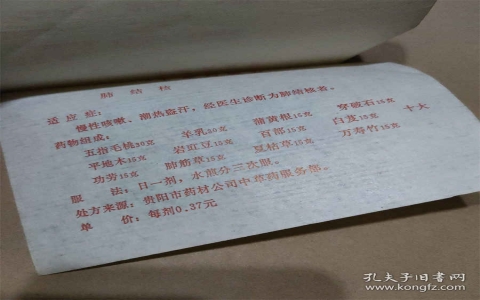 肺结核
适应症:
慢性咳嗽、潮热盗汗,经医生诊断为肺结核者。
药物组成:
五指毛桃30克 羊乳30克 蒲黄根15克 穿破石15克
平地木15克 岩豇豆15克 百部15克 白芨15克 十大
功劳15克 肺筋草15克 夏枯草15克 万寿竹15克
服 法:日一剂,水煎分三次服。
处方来源:贵阳市药材公司中草药服务部。
单 价:每剂0.37元
孔夫子旧书网
www.kongfz.com